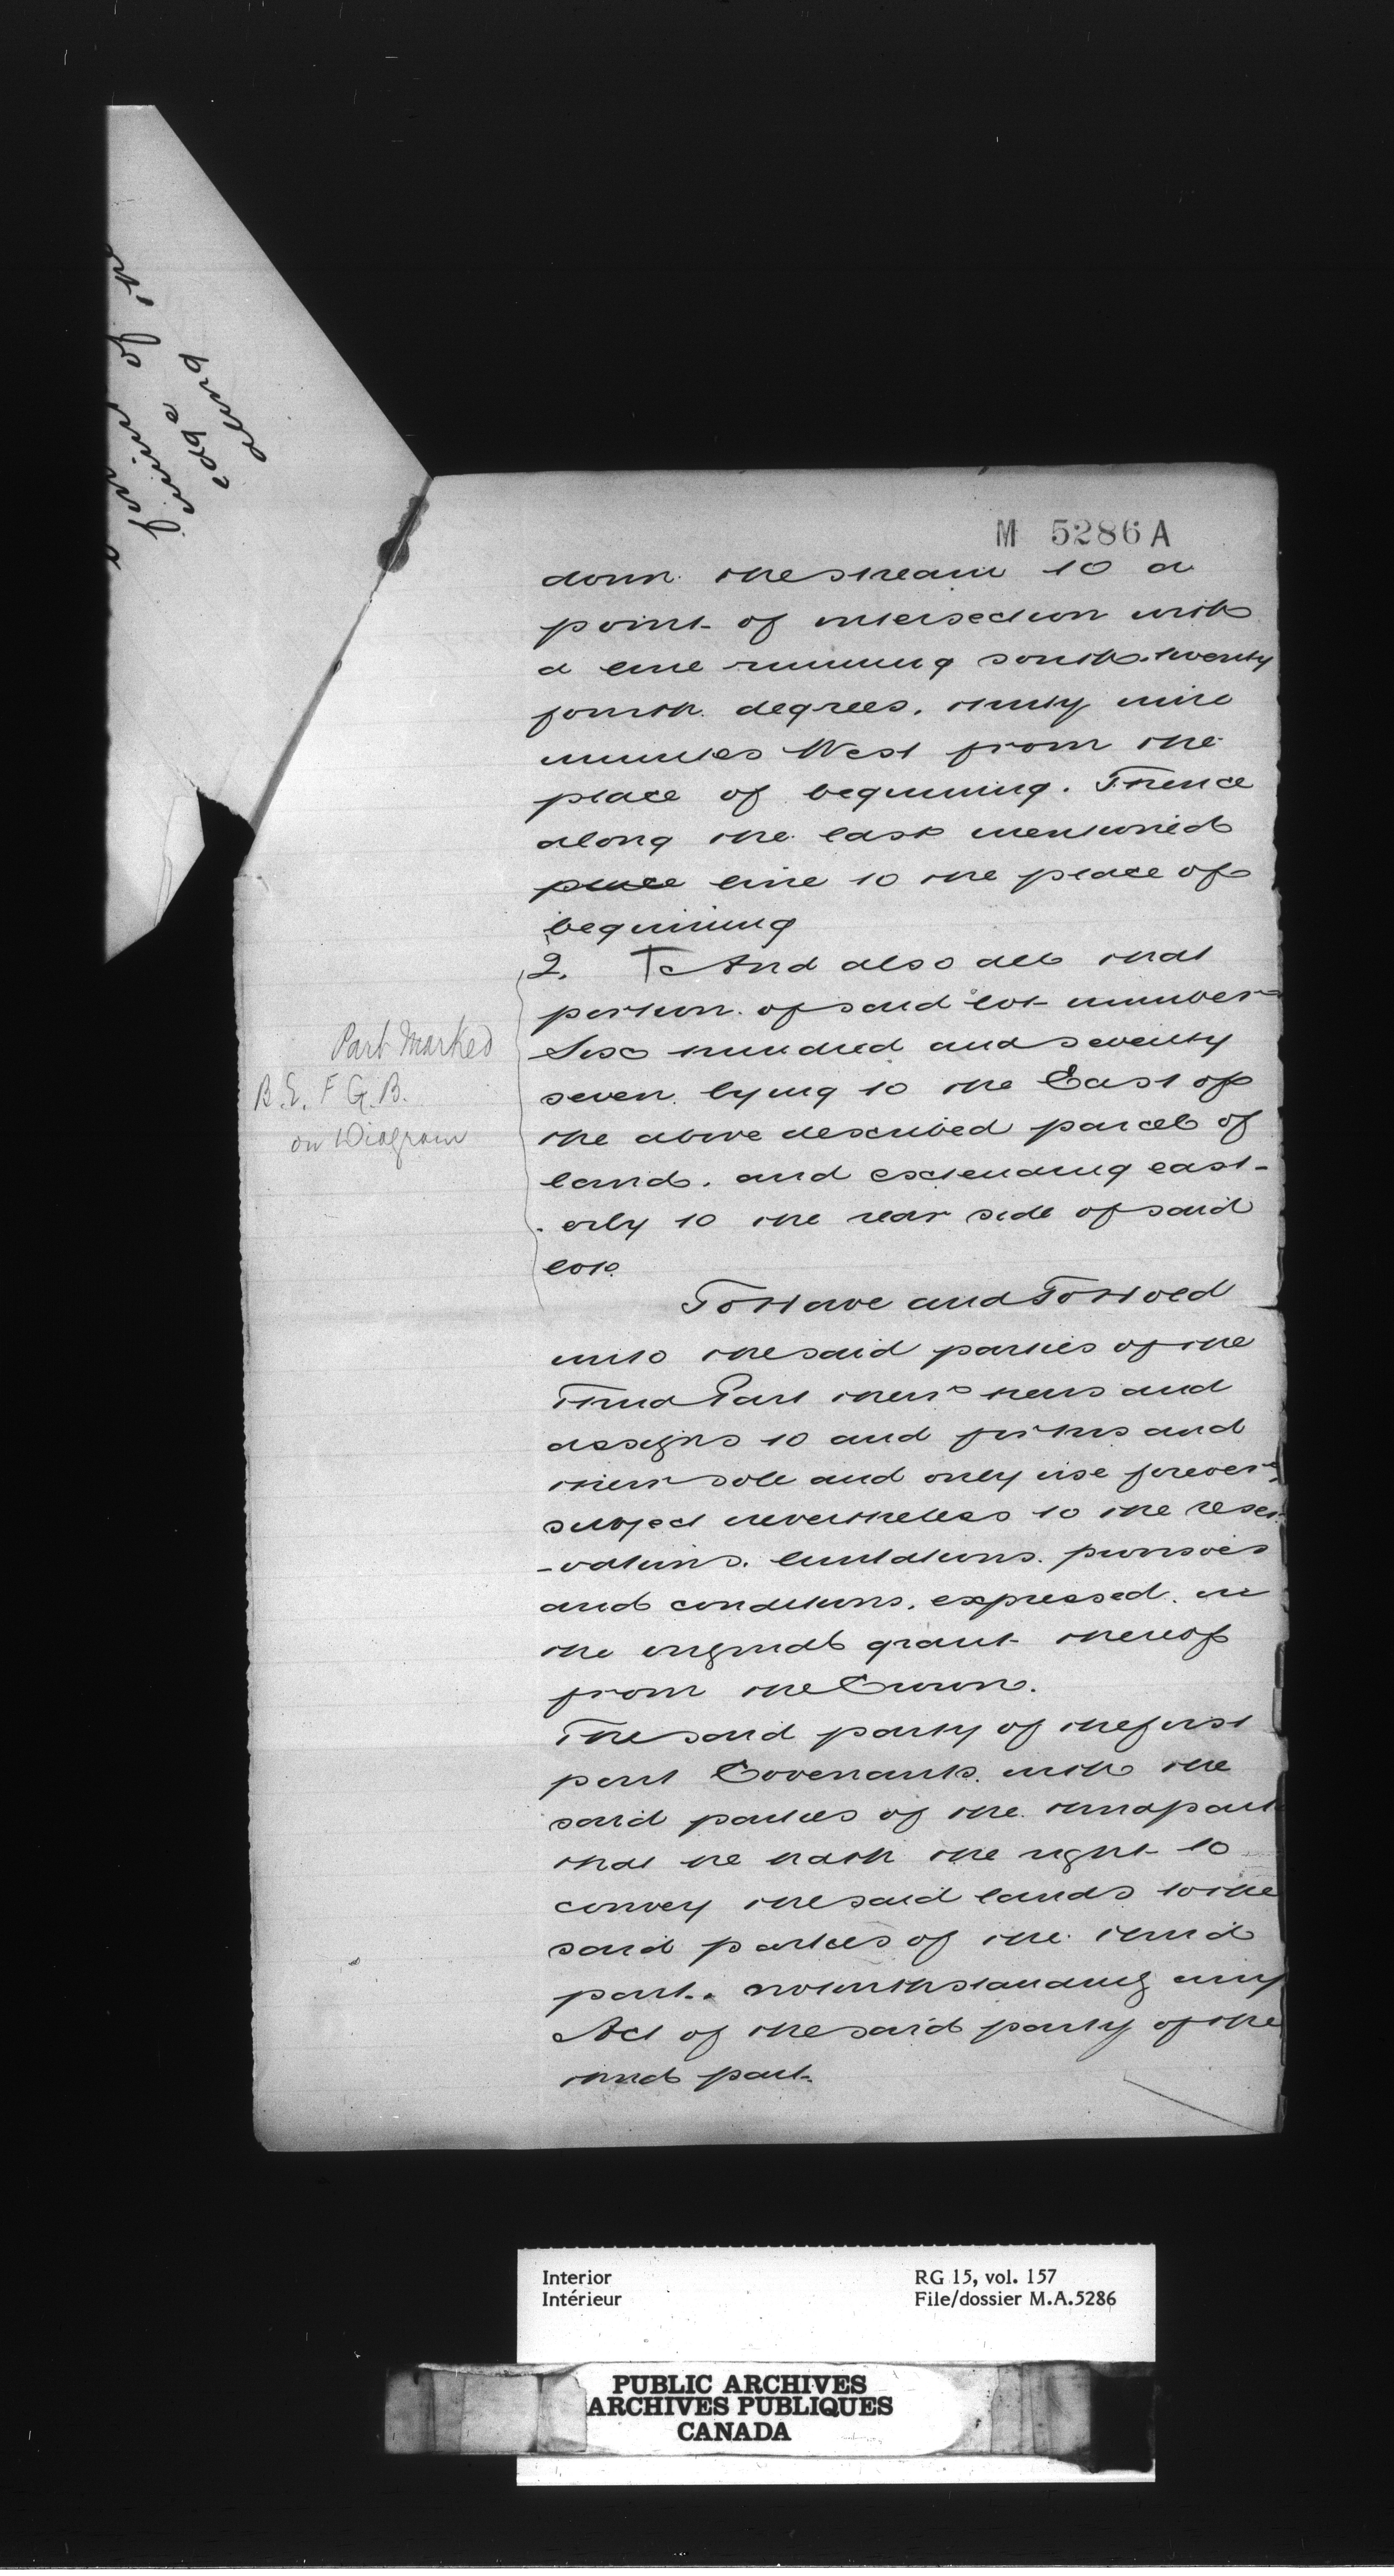 of the
line
edge
along
M 5286 A
down the stream to a
point of intersection with
a line running south. twenty
fourth degrees. thirty nine
minutes West from the
place of beginning. Thence
along the last mentioned
place line to the place of
beginning
2. And also all that
portion of said lot number
Six hundred and seventy
seven lying to the East of
the above described parcel of
land. and extending east-
erly to the rear side of said
lot.
Part Marked
B. E. F G. B.
on Diagram
To Have and To Hold
unto the said parties of the
Third Part their heirs and
assigns to and for his and
their sole and only use forever
subject nevertheless to the reser
-vations. limitations. provisoes
and conditions. expressed. in
the original grant thereof
from the Crown.
The said party of the first
part Covenants. with the
said parties of the third part
that he hath the right to
convey the said lands to the
said parties of the third
part. notwithstanding any
Act of the said party of the
third part.
Interior
Intérieur
RG 15, vol. 157
File/dossier M.A.5286
PUBLIC ARCHIVES
ARCHIVES PUBLIQUES
CANADA